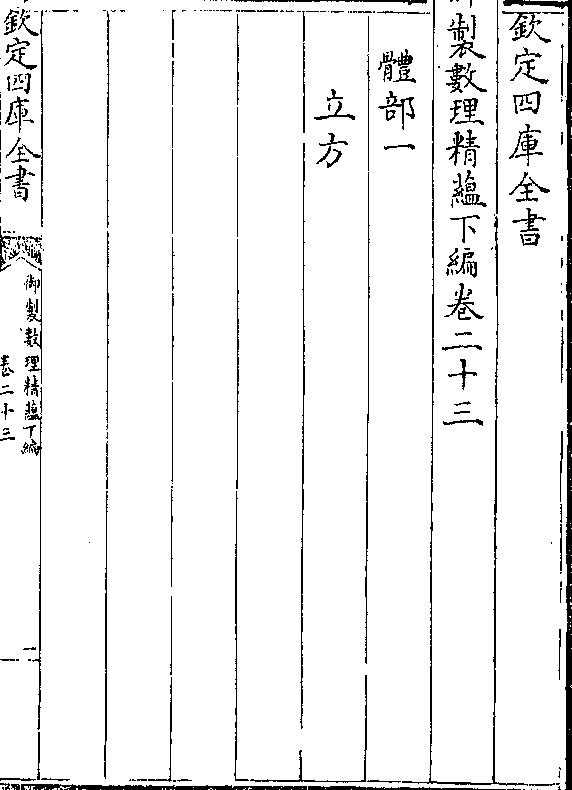 欽定四庫全書
御製數理精蘊下編卷二十三
體部一
立方
欽定四庫全書
御製數理精蘊下編
卷二十三
一